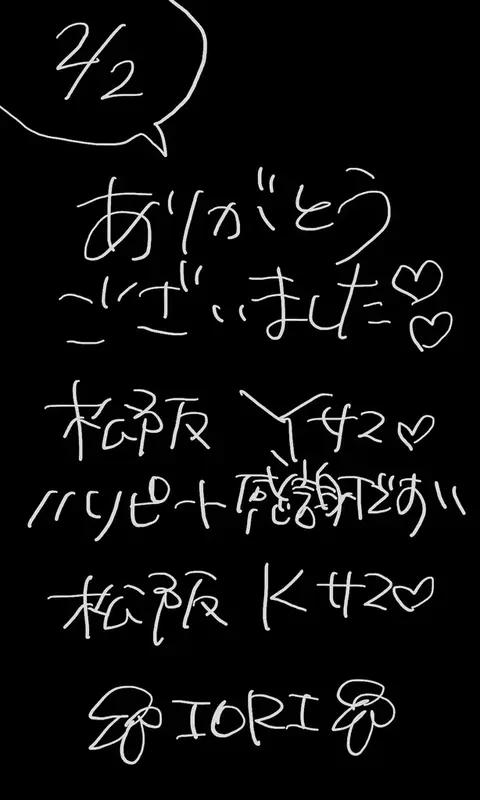 2/2
ありがとう
ございました♡♡
松阪 Yサマ♡
〃リピート感謝です〃
松阪 Kサマ♡
IORI